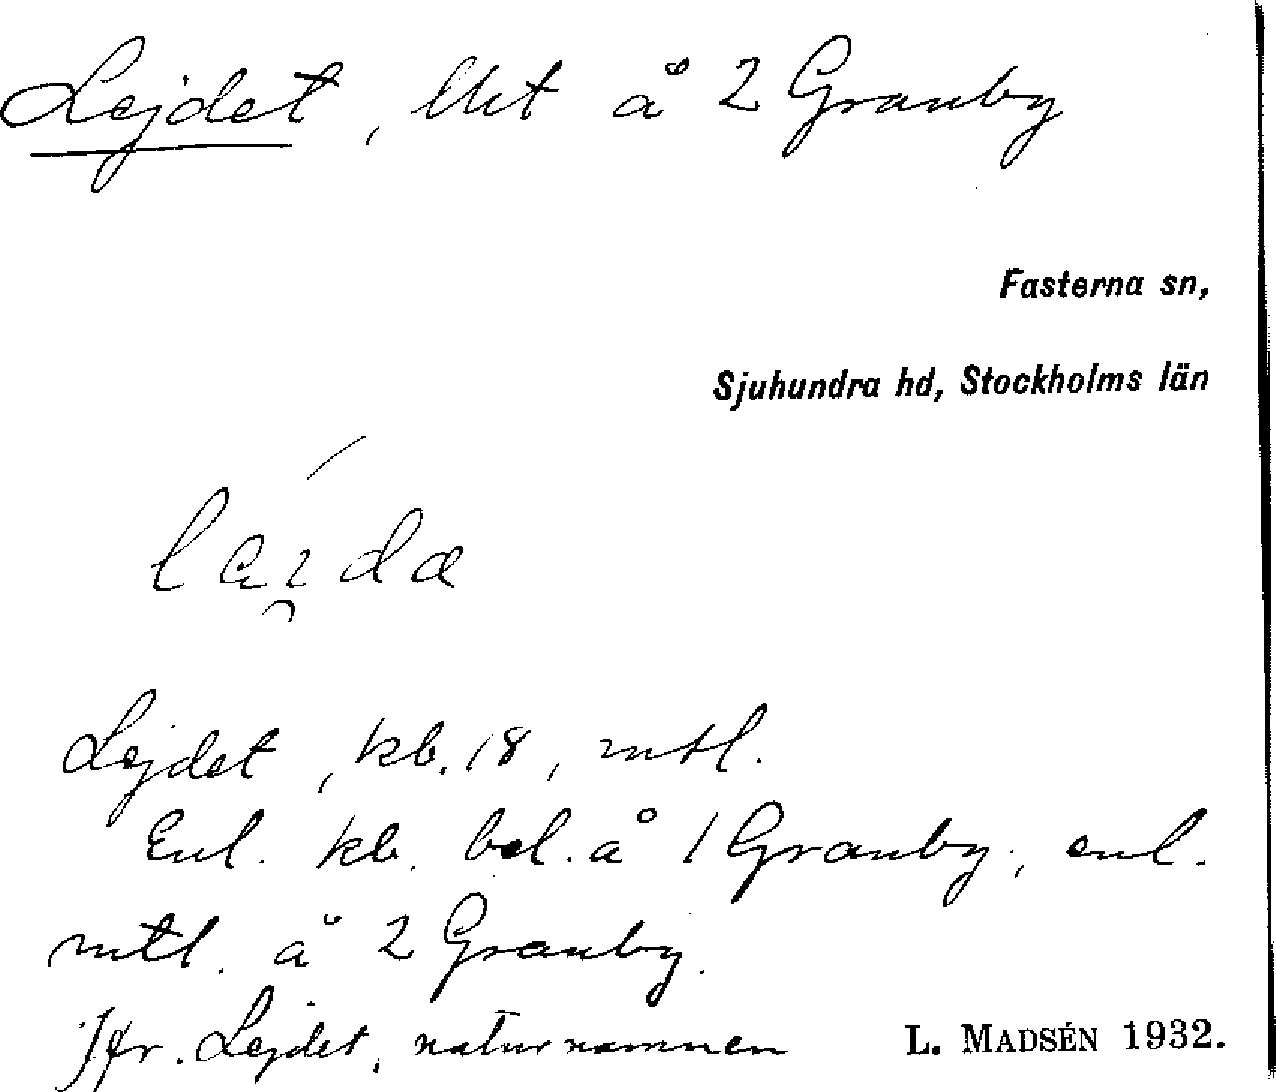 Lejdet, lht å 2 Granby
Fasterna sn,
Sjuhundra hd, Stockholms län
Lejdet, kb. 18, mtl.
Enl. kb. bel. å 1 Granby; enl.
mtl. å 2 Granby.
Jfr. Lejdet, naturnamnen
L. MADSÉN 1932.